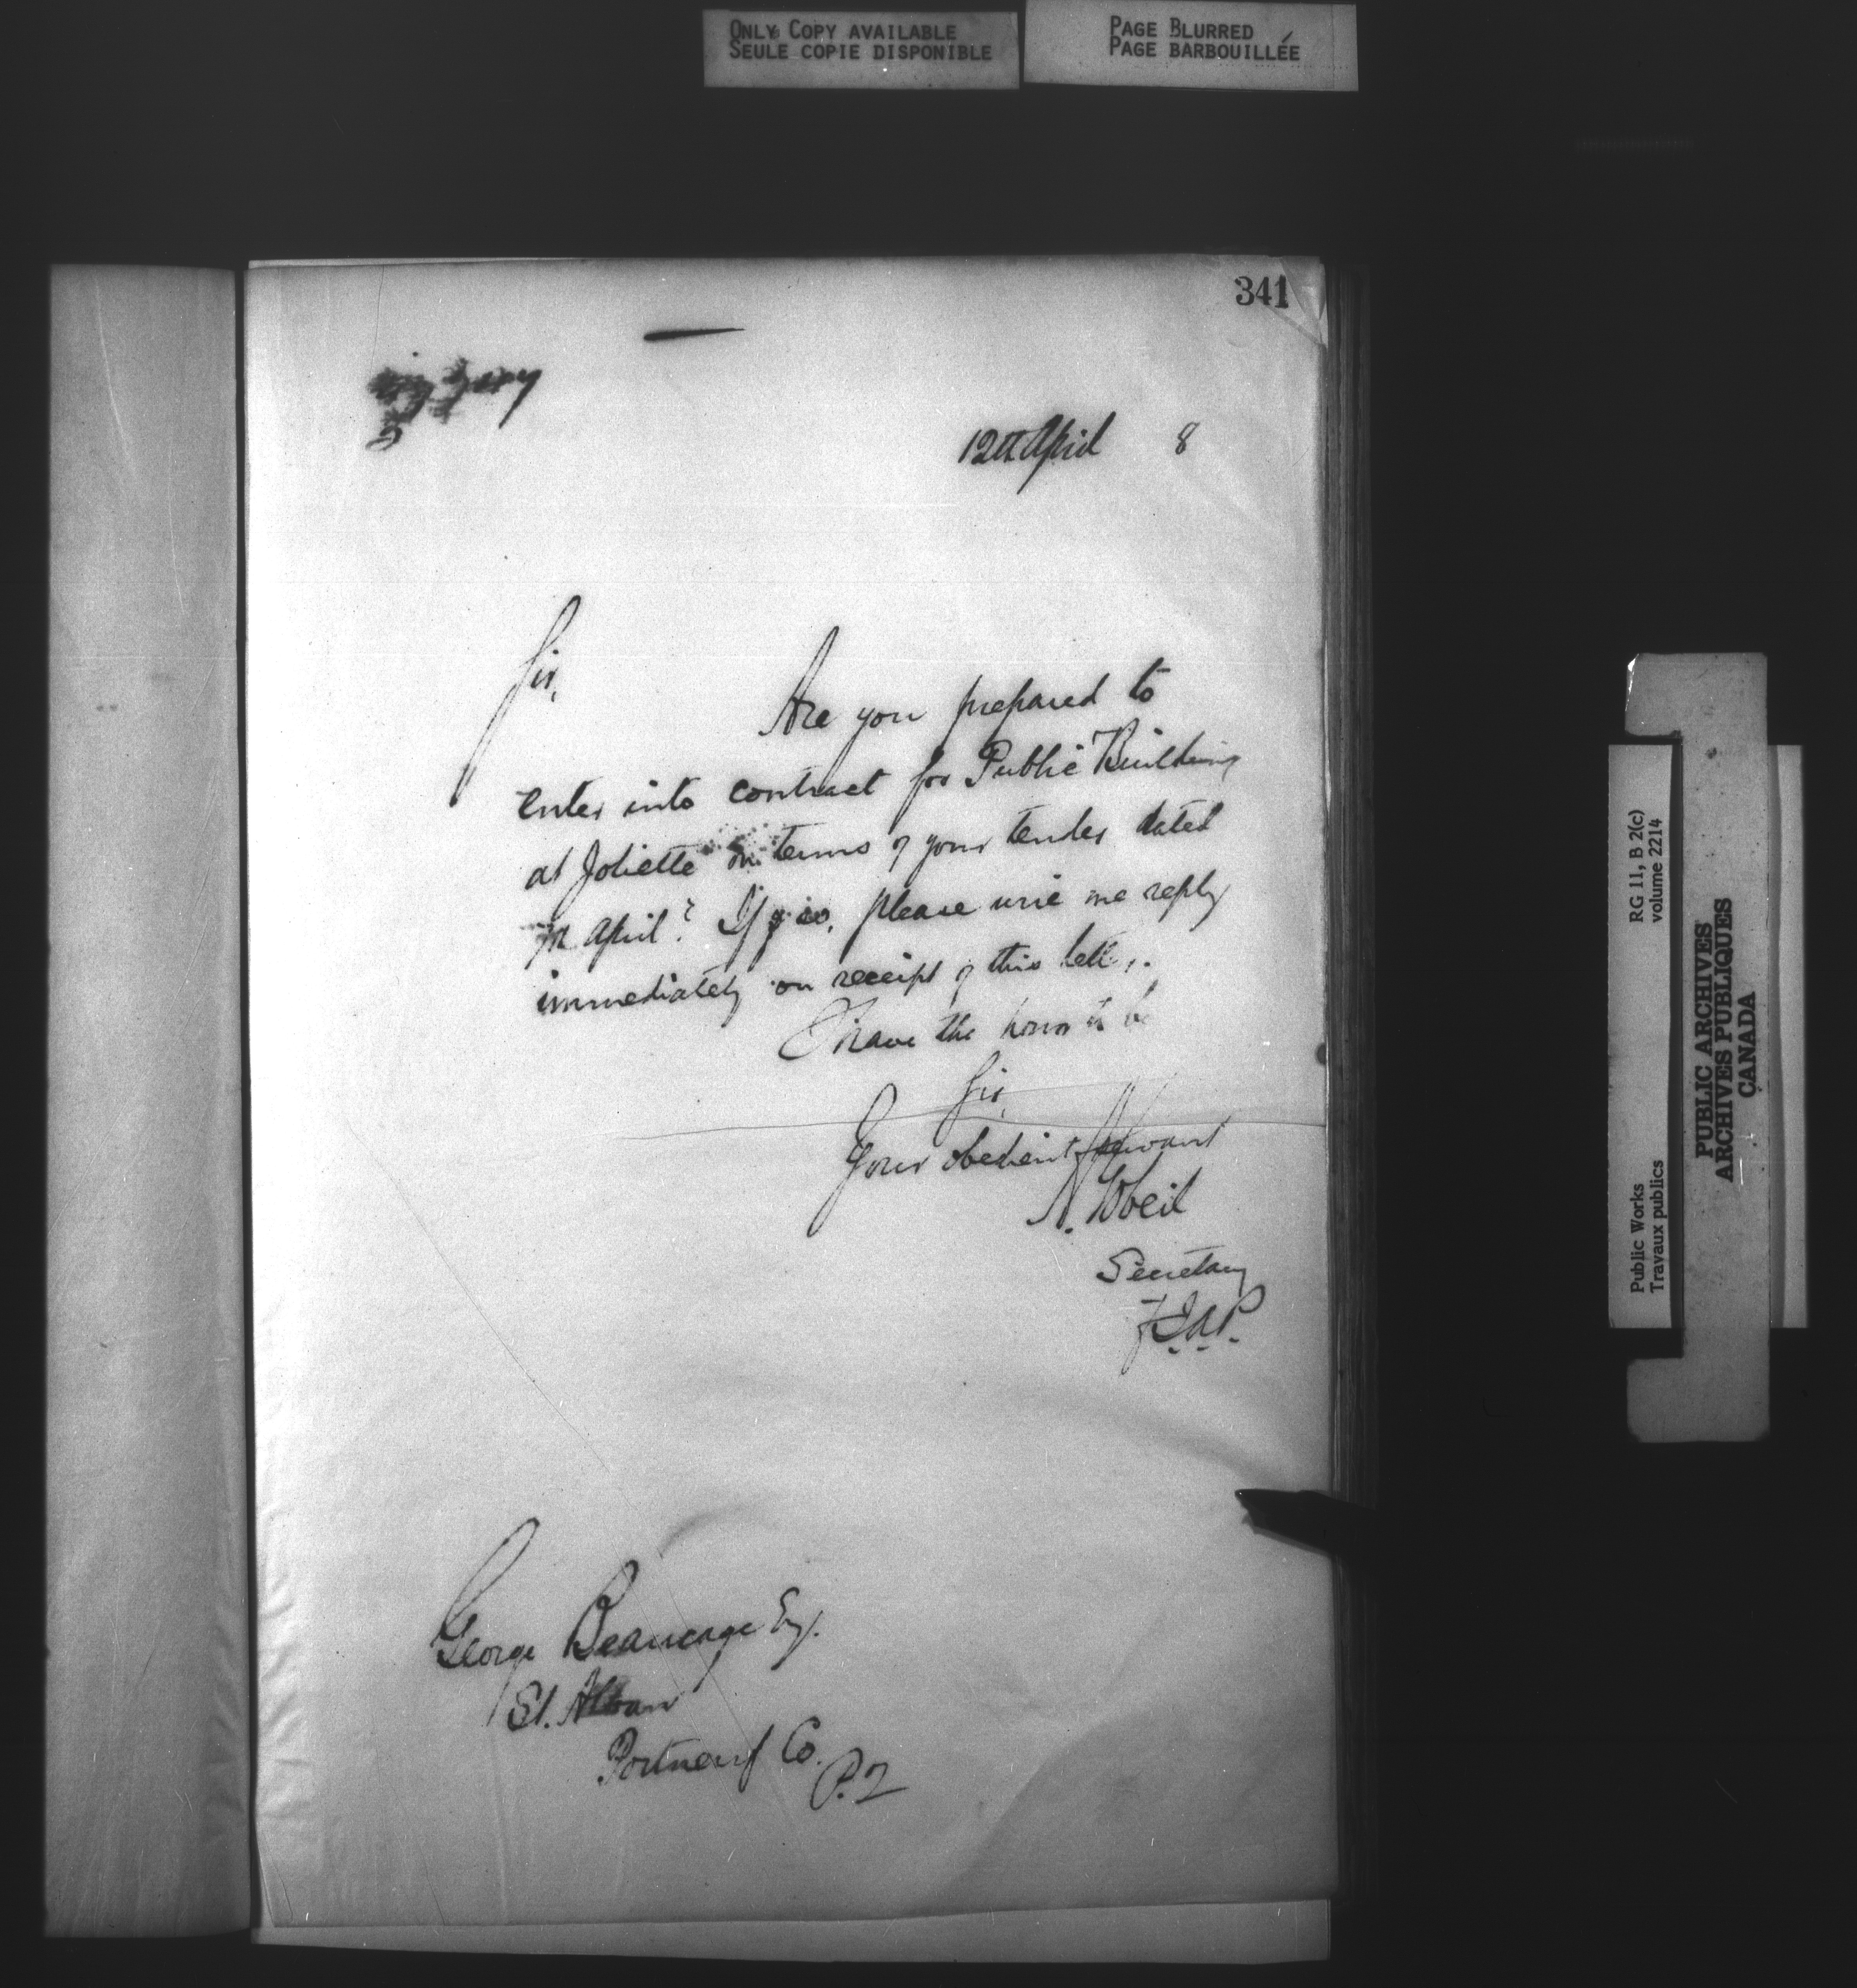 ONLY COPY AVAILABLE
SEULE COPIE DISPONIBLE
PAGE BLURRED
PAGE BARBOUILLÉE
341
12th April 8
Sir,
Are you prepared to
enter into contract for Public Building
at Joliette on terms of your tender dated
April? If so, please wire me reply
immediately on receipt of this letter.
I have the honor to be
Sir,
Your obedient servant
A. Gobeil
Secretary
George Beaucage Esq.
St. Alban
Portneuf Co.
P.Q
RG 11, B 2(c)
volume 2214
Public Works
Travaux publics
PUBLIC ARCHIVES
ARCHIVES PUBLIQUES
CANADA